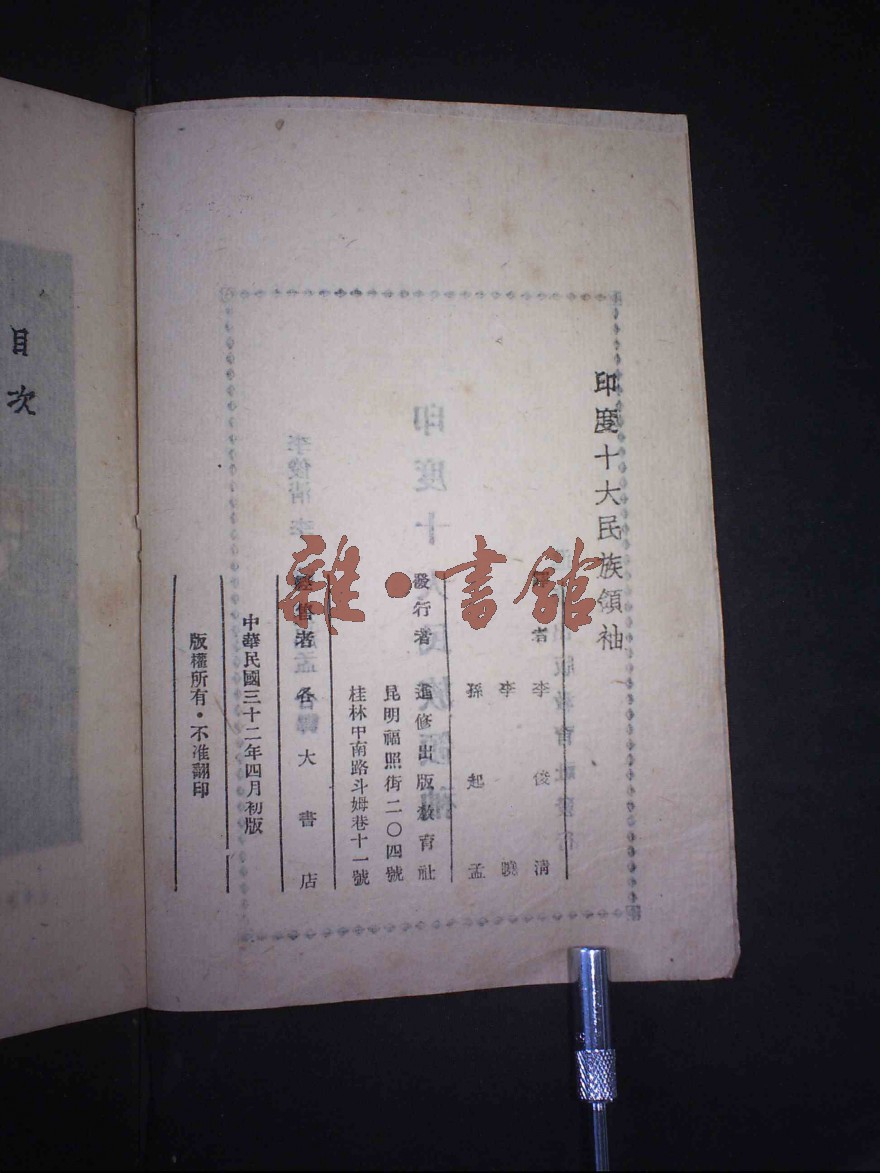 印度十大民族領袖
者 李俊清
李
孫起孟
發行者 進修出版教育社
昆明福照街二〇四號
桂林中南路斗姆巷十一號
經售者 各大書店
中華民國三十二年四月初版
版權所有・不准翻印
目次
雜・書館